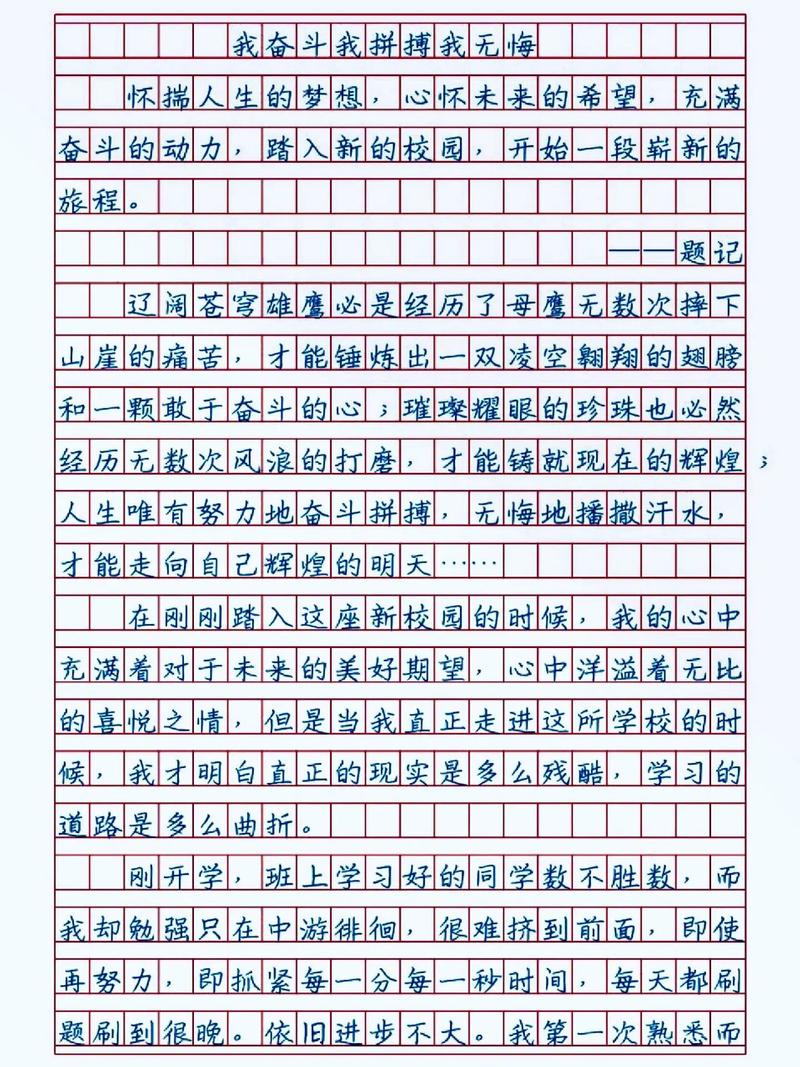 我奋斗我拼搏我无悔
怀揣人生的梦想，心怀未来的希望，充满
奋斗的动力，踏入新的校园，开始一段崭新的
旅程。
——题记
辽阔苍穹雄鹰必是经历了母鹰无数次摔下
山崖的痛苦，才能锤炼出一双凌空翱翔的翅膀
和一颗敢于奋斗的心；璀璨耀眼的珍珠也必然
经历无数次风浪的打磨，才能铸就现在的辉煌；
人生唯有努力地奋斗拼搏，无悔地播撒汗水，
才能走向自己辉煌的明天……
在刚刚踏入这座新校园的时候，我的心中
充满着对于未来的美好期望，心中洋溢着无比
的喜悦之情，但是当我真正走进这所学校的时
候，我才明白真正的现实是多么残酷，学习的
道路是多么曲折。
刚开学，班上学习好的同学数不胜数，而
我却勉强只在中游徘徊，很难挤到前面，即使
再努力，即抓紧每一分每一秒时间，每天都刷
题刷到很晚。依旧进步不大。我第一次熟悉而